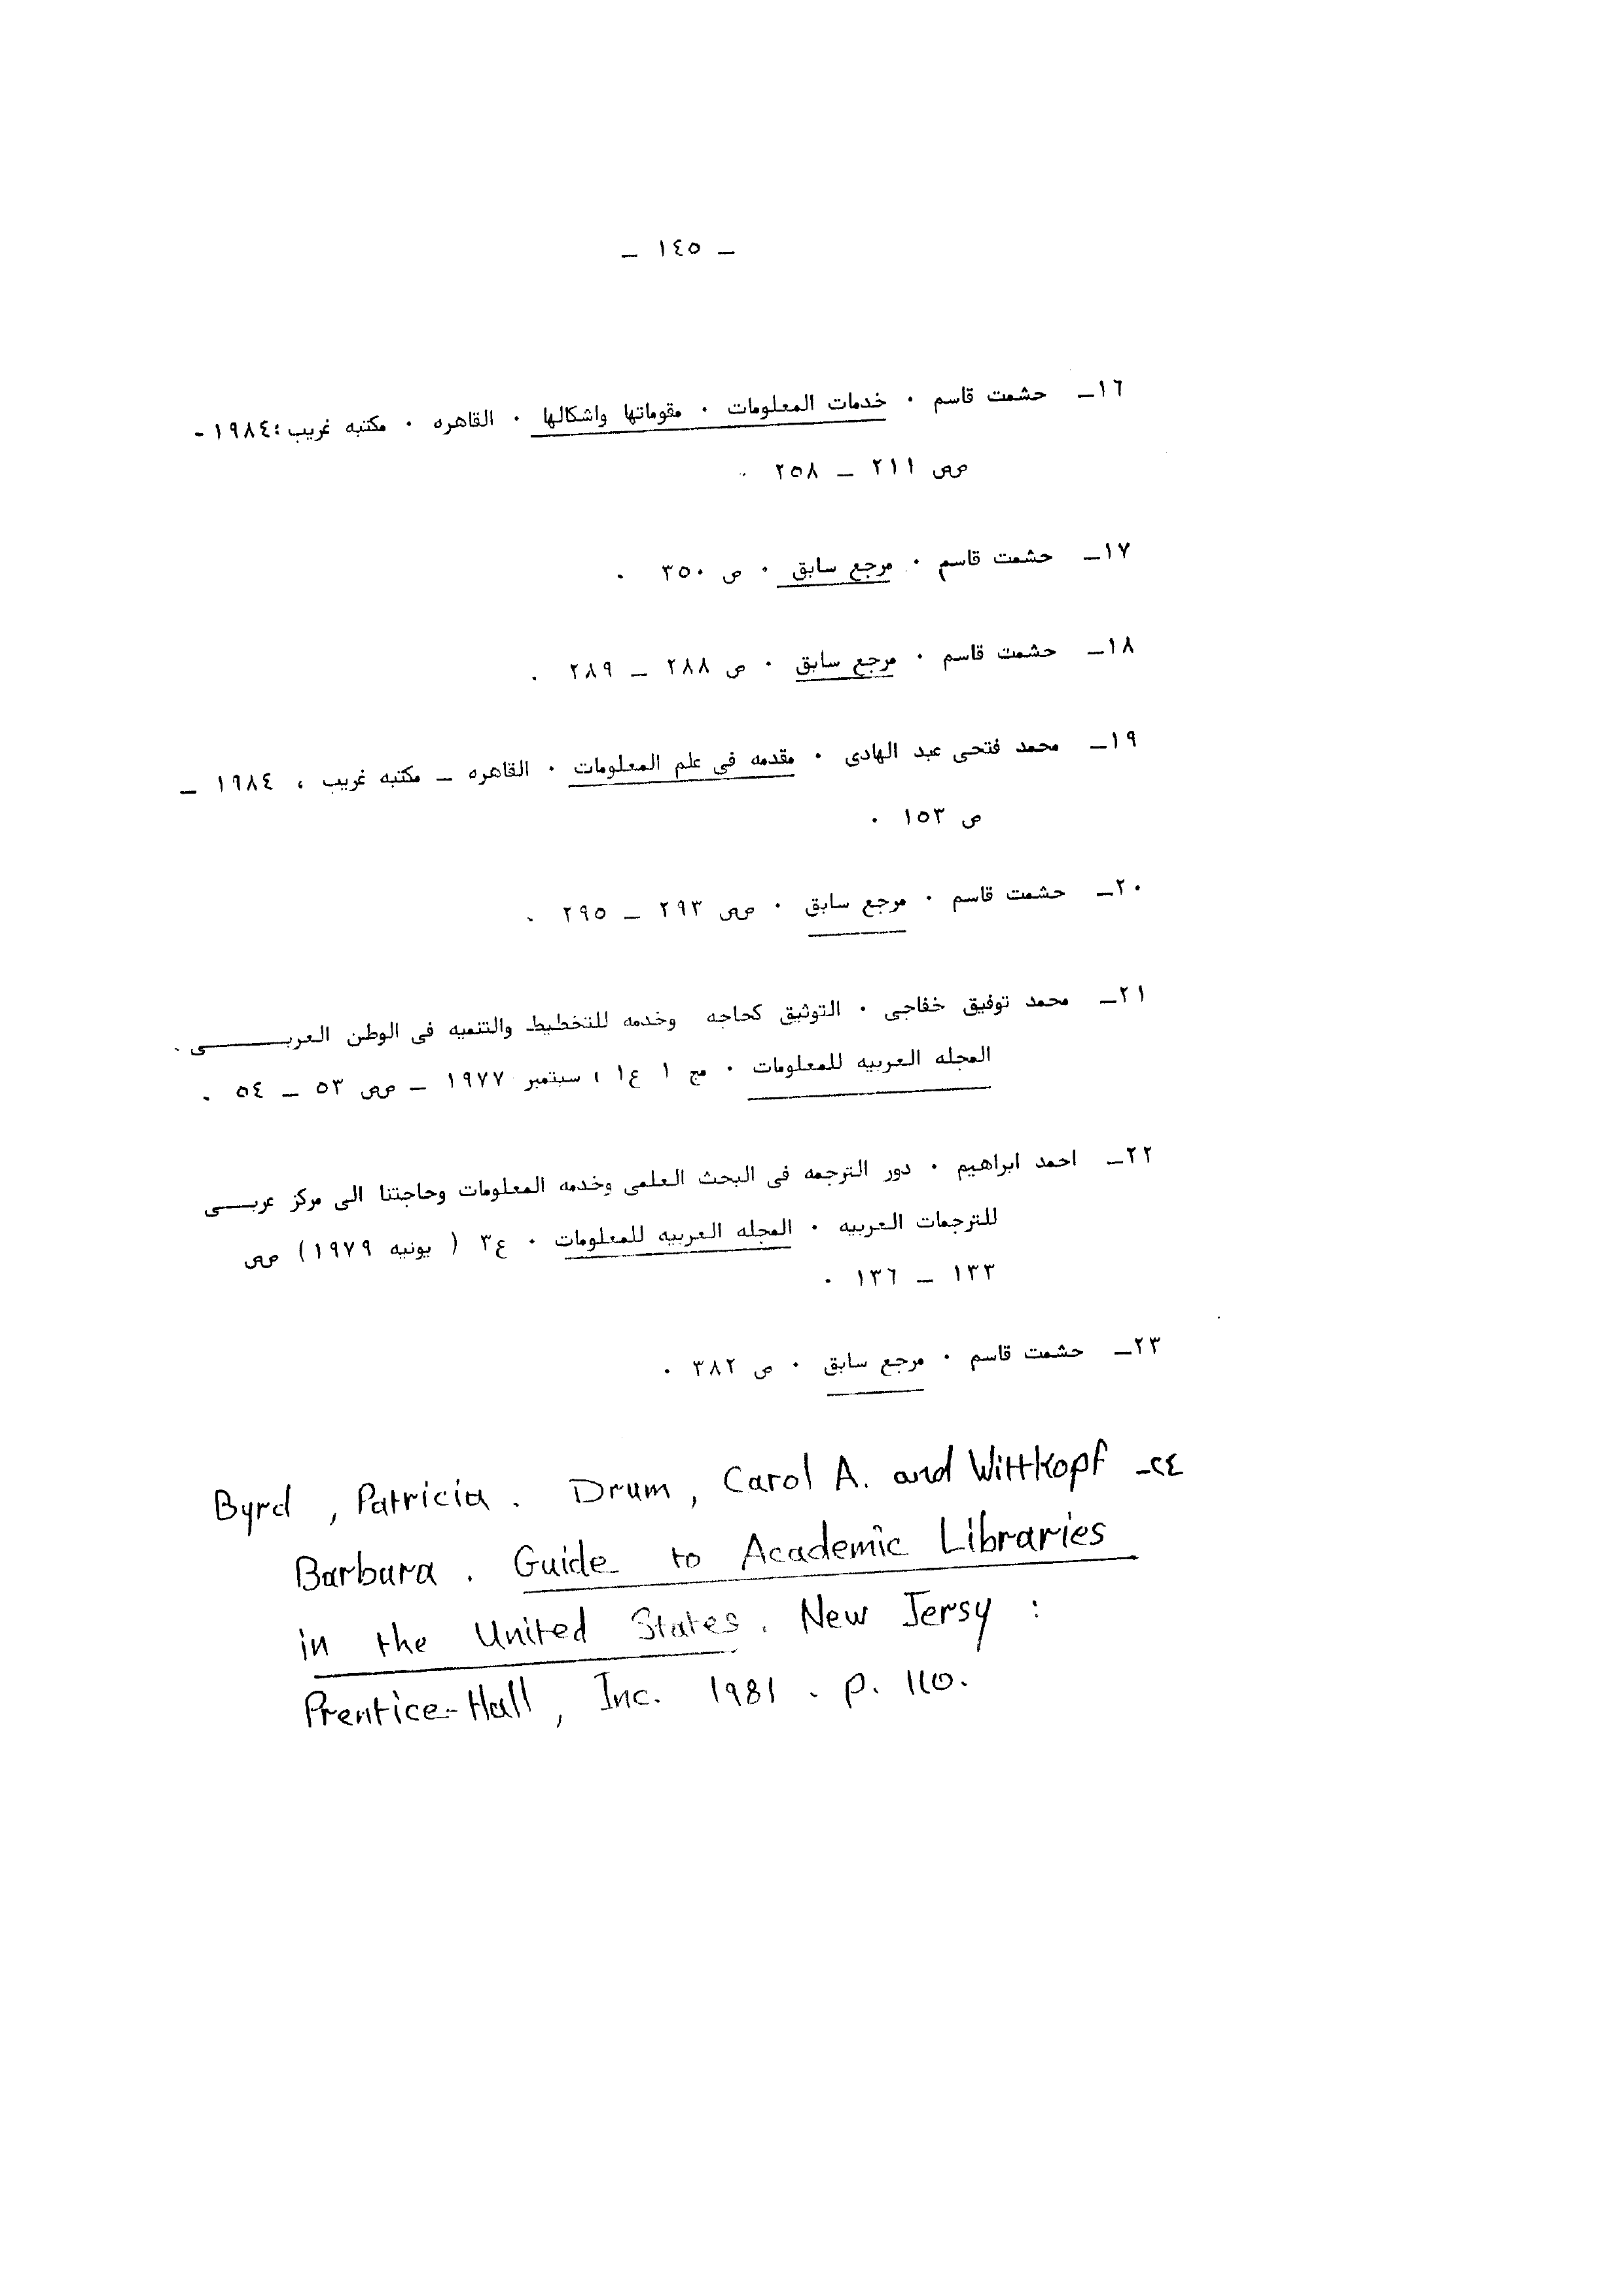 ـ ١٤٥ ـ
١٦ـ حشمت قاسم ٠ خدمات المعلومات ٠ مقوماتها واشكالها ٠ القاهره ٠ مكتبه غريب ؛ ١٩٨٤ -
صص ٢١١ ـ ٢٥٨ ٠
١٧ـ حشمت قاسم ٠ مرجع سابق ٠ ص ٣٥٠ ٠
١٨ـ حشمت قاسم ٠ مرجع سابق ٠ ص ٢٨٨ ـ ٢٨٩ ٠
١٩ـ محمد فتحى عبد الهادى ٠ مقدمه فى علم المعلومات ٠ القاهره ـ مكتبه غريب ، ١٩٨٤ ـ
ص ١٥٣ ٠
٢٠ـ حشمت قاسم ٠ مرجع سابق ٠ صص ٢٩٣ ـ ٢٩٥ ٠
٢١ـ محمد توفيق خفاجى ٠ التوثيق كحاجه وخدمه للتخطيط والتنميه فى الوطن العربــــــى ٠
المجله العربيه للمعلومات ٠ مج ١ ع١ ، سبتمبر ١٩٧٧ ـ صص ٥٣ ـ ٥٤ ٠
٢٢ـ احمد ابراهيم ٠ دور الترجمه فى البحث العلمى وخدمه المعلومات وحاجتنا الى مركز عربــــى
للترجمات العربيه ٠ المجله العربيه للمعلومات ٠ ع٣ ( يونيه ١٩٧٩) صص
١٣٣ ـ ١٣٦ ٠
٢٣ـ حشمت قاسم ٠ مرجع سابق ٠ ص ٣٨٢ ٠
٢٤- Byrd , Patricia . Drum , Carol A. and Wittkopf
Barbara . Guide to Academic Libraries
in the United States . New Jersy :
Prentice-Hall , Inc. 1981 . p. 110.